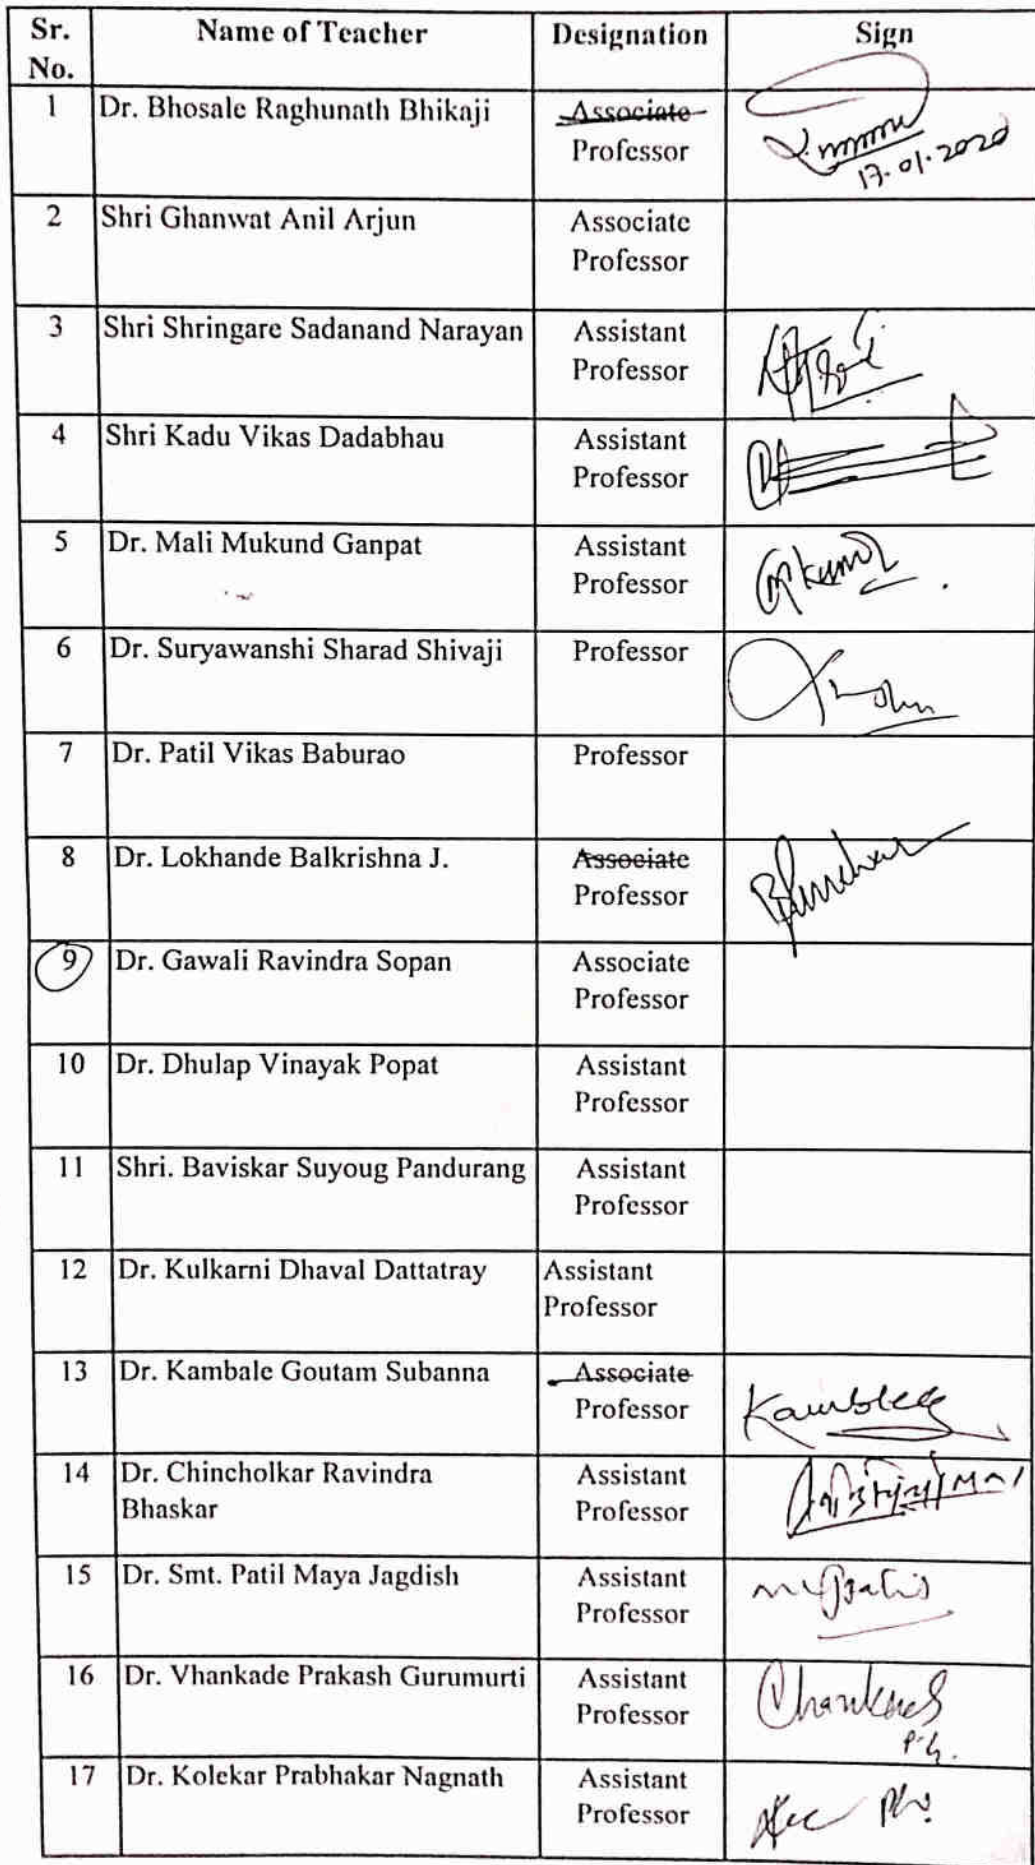 Sr. No. Name of Teacher Designation Sign
1 Dr. Bhosale Raghunath Bhikaji Associate
Professor
17.01.2020
2 Shri Ghanwat Anil Arjun Associate
Professor
3 Shri Shringare Sadanand Narayan Assistant
Professor
4 Shri Kadu Vikas Dadabhau Assistant
Professor
5 Dr. Mali Mukund Ganpat Assistant
Professor
6 Dr. Suryawanshi Sharad Shivaji Professor
7 Dr. Patil Vikas Baburao Professor
8 Dr. Lokhande Balkrishna J. Associate
Professor
9 Dr. Gawali Ravindra Sopan Associate
Professor
10 Dr. Dhulap Vinayak Popat Assistant
Professor
11 Shri. Baviskar Suyoug Pandurang Assistant
Professor
12 Dr. Kulkarni Dhaval Dattatray Assistant
Professor
13 Dr. Kambale Goutam Subanna Associate
Professor Kamblegs
14 Dr. Chincholkar Ravindra Assistant
Bhaskar Professor
15 Dr. Smt. Patil Maya Jagdish Assistant
Professor
16 Dr. Vhankade Prakash Gurumurti Assistant
Professor
P.G.
17 Dr. Kolekar Prabhakar Nagnath Assistant
Professor